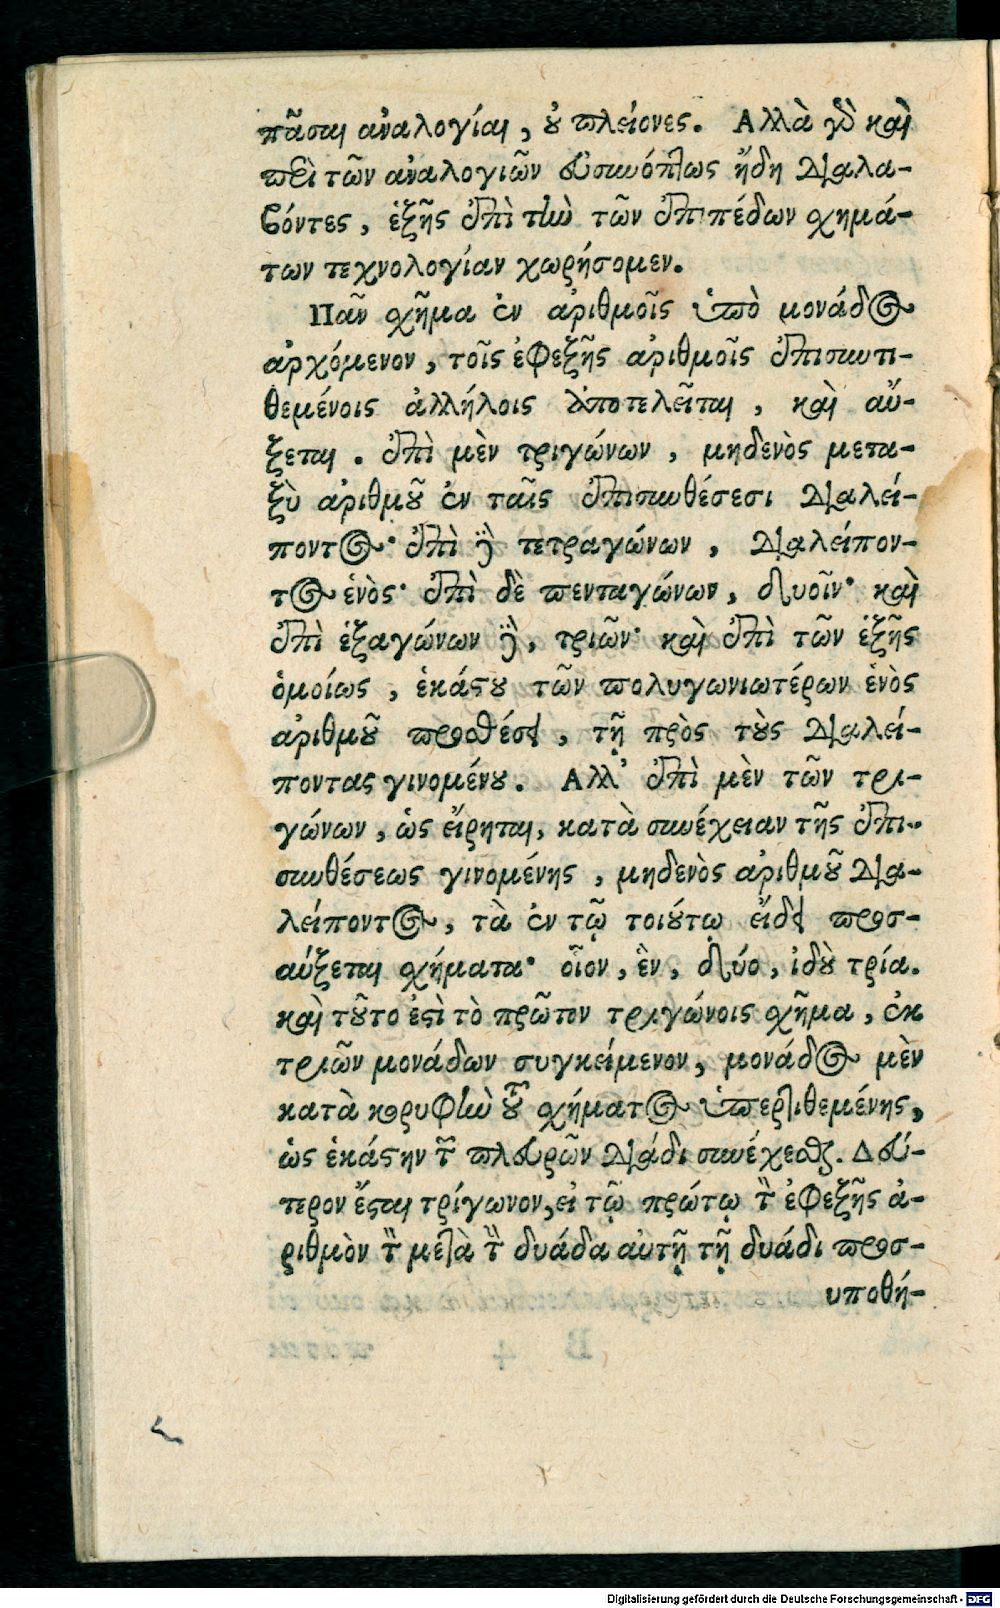 πᾶσαι ἀναλογίαι, οὐ πλείονες. Ἀλλὰ γὸ καὶ
περὶ τῶν ἀναλογιῶν εὐσυνόπτως ἤδη διαλα-
βόντες, ἑξῆς ἐπὶ τὴν τῶν ἐπιπέδων σχημά-
των τεχνολογίαν χωρήσομεν.
Πᾶν σχῆμα ἐν ἀριθμοῖς ὑπὸ μονάδος
ἀρχόμενον, τοῖς ἐφεξῆς ἀριθμοῖς ἐπισυντι-
θεμένοις ἀλλήλοις ἀποτελεῖται, καὶ αὔ-
ξεται. ἐπὶ μὲν τριγώνων, μηδενὸς μετα-
ξὺ ἀριθμοῦ ἐν ταῖς ἐπισυνθέσεσι διαλεί-
ποντος· ἐπὶ δὲ τετραγώνων, διαλείπον-
τος ἑνός· ἐπὶ δὲ πενταγώνων, δυοῖν· καὶ
ἐπὶ ἑξαγώνων δὲ, τριῶν· καὶ ἐπὶ τῶν ἑξῆς
ὁμοίως, ἑκάστου τῶν πολυγωνιωτέρων ἑνὸς
ἀριθμοῦ προσθέσει, τῇ πρὸς τοὺς διαλεί-
ποντας γινομένου. Ἀλλ' ἐπὶ μὲν τῶν τρι-
γώνων, ὡς εἴρηται, κατὰ συνέχειαν τῆς ἐπι-
συνθέσεως γινομένης, μηδενὸς ἀριθμοῦ δια-
λείποντος, τὰ ἐν τῷ τοιούτῳ εἴδει προσ-
αύξεται σχήματα· οἷον, ἓν, δύο, ἰδοὺ τρία.
καὶ τοῦτο ἐστὶ τὸ πρῶτον τριγώνοις σχῆμα, ἐκ
τριῶν μονάδων συγκείμενον, μονάδος μὲν
κατὰ κορυφὴν τοῦ σχήματος ὑπερτιθεμένης,
ὡς ἑκάστην τῶν πλευρῶν διάδι συνέχεσθαι. Δεύ-
τερον ἔσται τρίγωνον, εἰ τῷ πρώτῳ τὸν ἐφεξῆς ἀ-
ριθμὸν τὸν μετὰ τὸν δυάδα αὐτῇ τῇ δυάδι προσ-
υποθή-
Digitalisierung gefördert durch die Deutsche Forschungsgemeinschaft - DFG